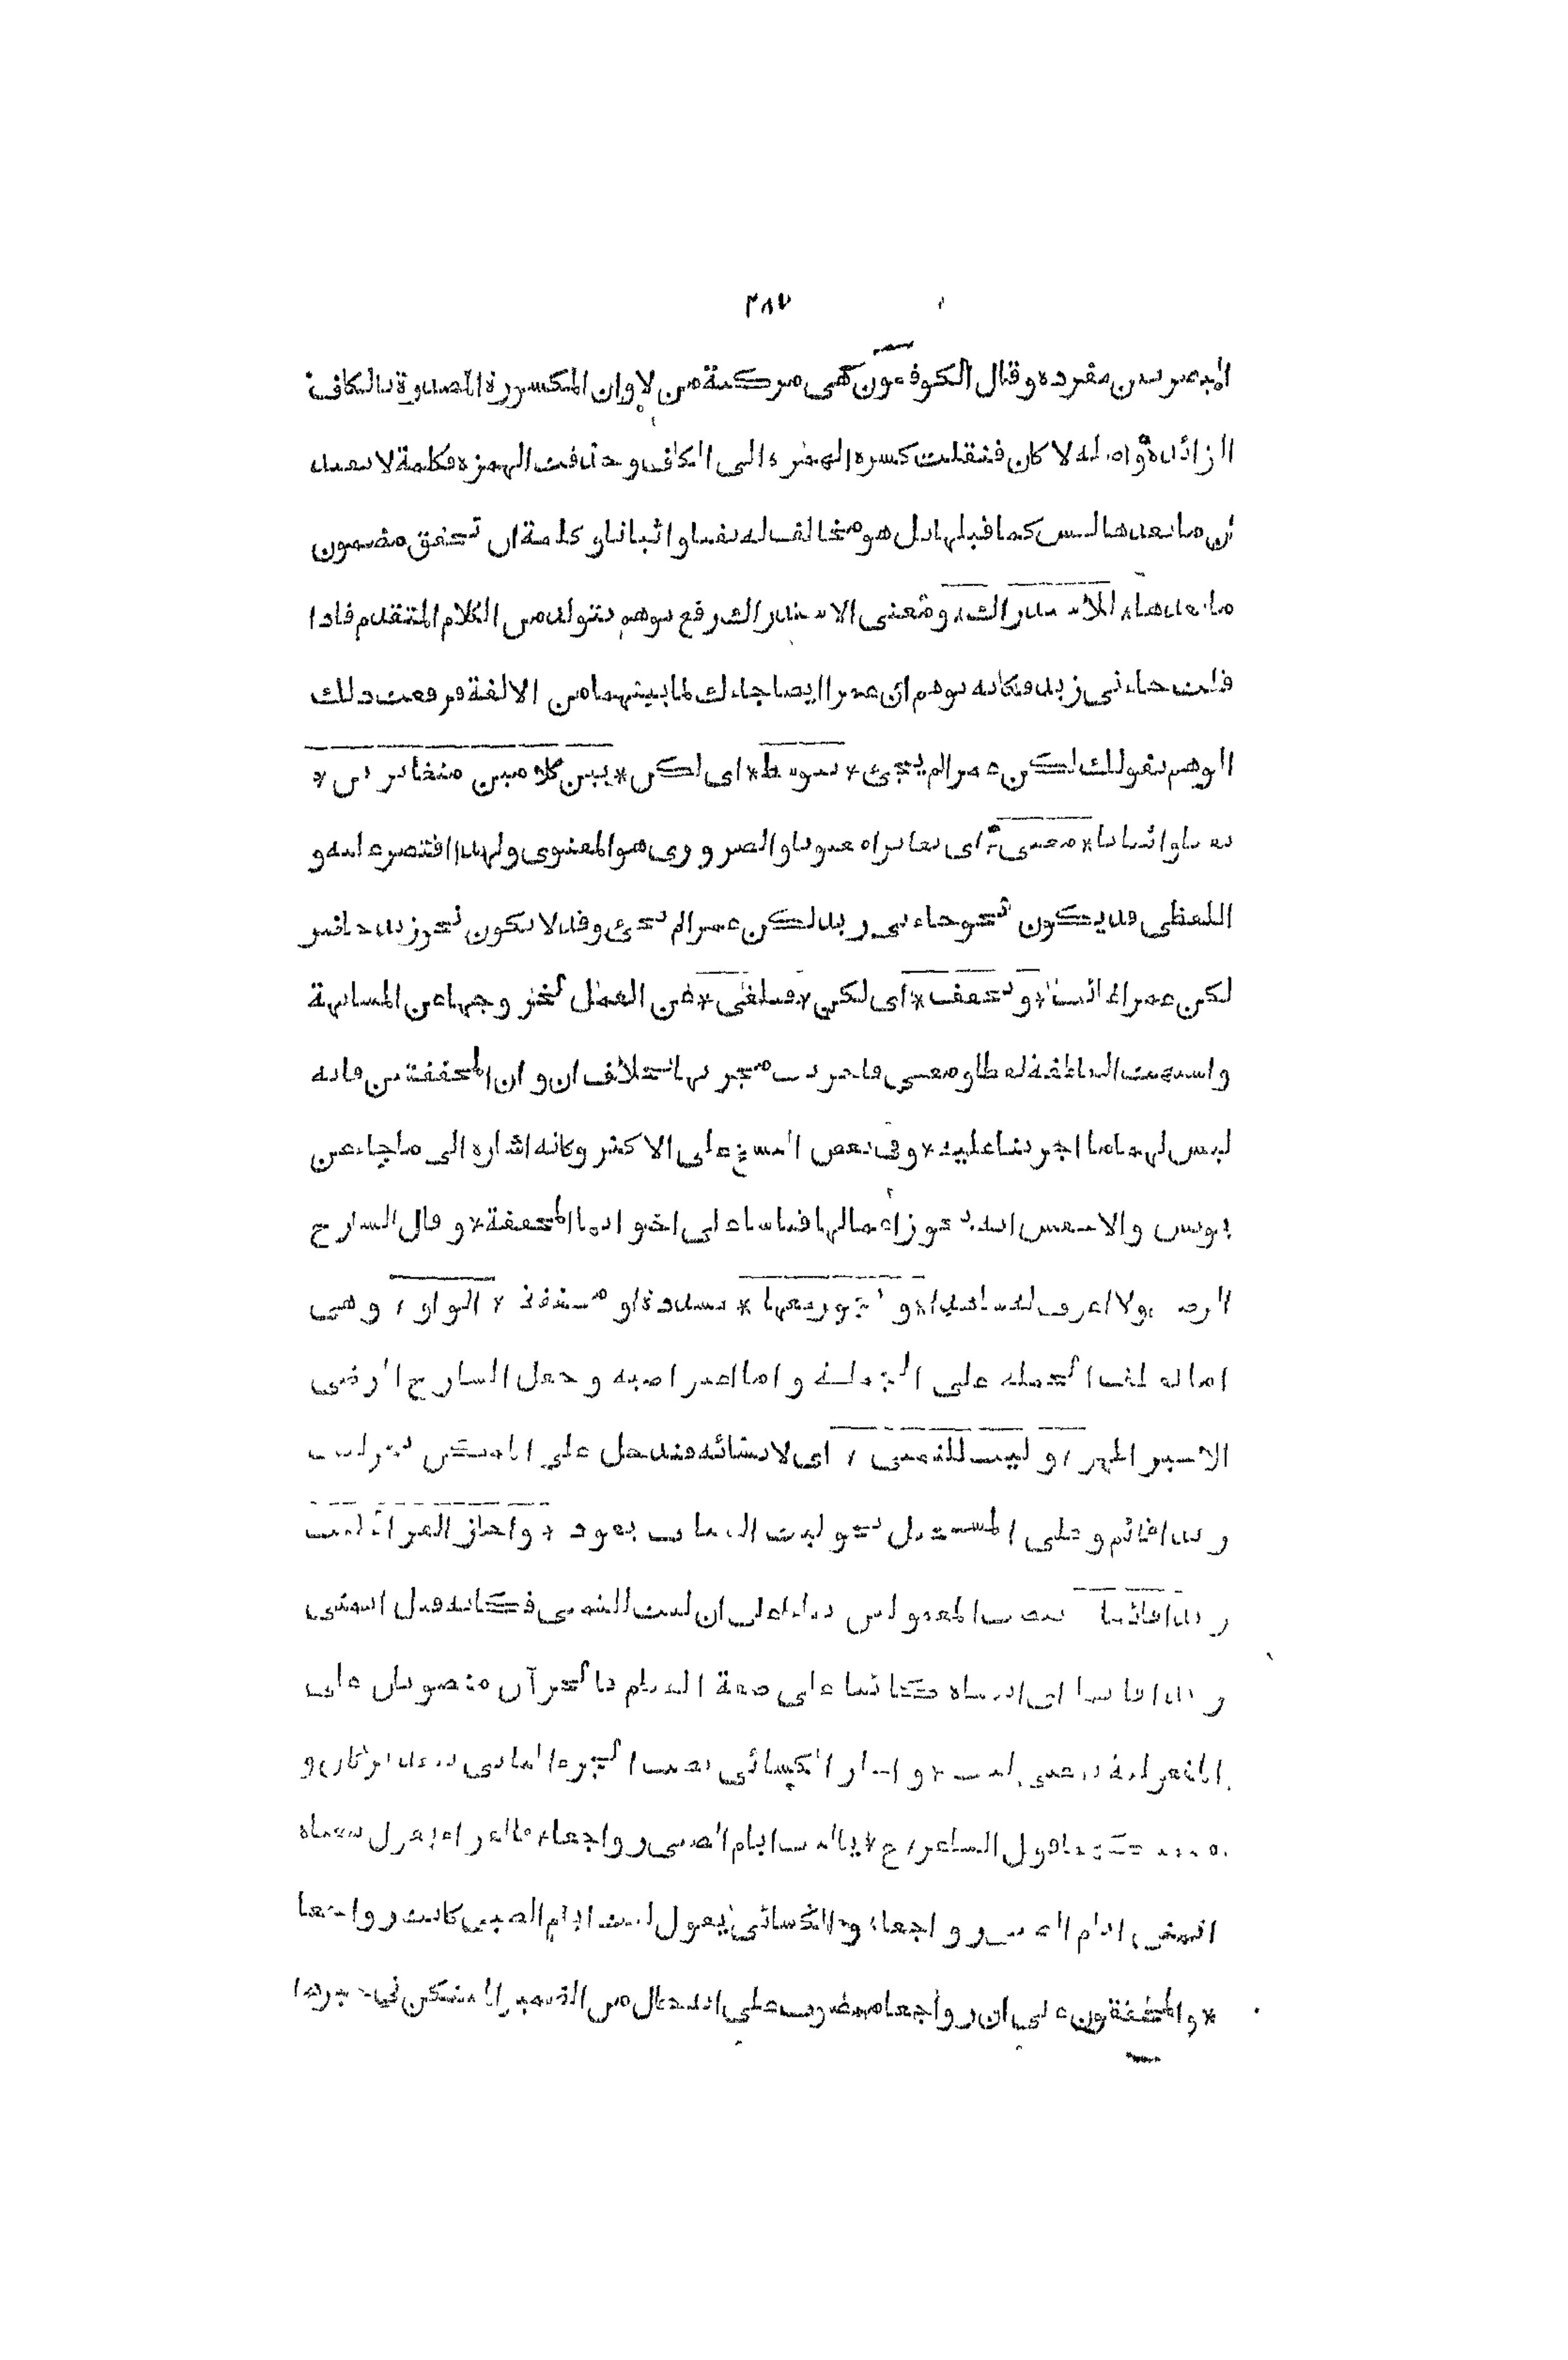 ٣٨٧
البصريين مفرده وقال الكوفيون هى مركبة من لا وان المكسورة المصدرة بالكاف
الزائدة واصله لا كان فنقلت كسره الهمزه الى الكاف وحذفت الهمزه فكلمة لا تفيد
ان ما بعدها ليس كما قبلها بل هو مخالف له نفيا واثباتا وكلمة ان تحقق مضمون
ما بعدها * للاستدراك * ومعنى الاستدراك رفع توهم يتولد من الكلام المتقدم فاذا
قلت جاءنى زيد فكانه توهم ان عمرا ايضا جاءك لما بينهما من الالفة فرفعت ذلك
الوهم بقولك لكن عمرا لم يجئ * تتوسط * اى لكن * بين كلامين متغايرين *
نفيا واثباتا * معنى * اى تغايرا معنويا والضرورى هو المعنوى ولهذا اقتصر عليه و
اللفظى قد يكون نحو جاءنى زيد لكن عمرا لم يجئ وقد لا يكون نحو زيد حاضر
لكن عمرا غائب * وتخفف * اى لكن * فتلغى * عن العمل لخروجها عن المشابهة
واشبهت العاطفة لفظا ومعنى فاجريت مجريها بخلاف ان وان المخففتين فانه
ليس لهما ما اجريتا عليه * وفى بعض النسخ على الاكثر وكانه اشاره الى ما جاء عن
يونس والاخفش انه يجوز اعمالها قياسا على اخواتها المخففة * وقال الشارح
الرضى ولا اعرف له شاهدا * ويجوز معها * مشددة او مخففة * الواو * وهى
اما لعطف الجملة على الجملة واما اعتراضيه وجعل الشارح الرضى
الاخير اظهر * وليت للتمنى * اى لانشائه فتدخل على الممكن نحو ليت
زيدا قائم وعلى المستحيل نحو ليت الشباب يعود * واجاز الفراء ليت
زيدا قائما * بنصب المعمولين بناء على ان ليت للتمنى فكانه قيل اتمنى
زيدا قائما اى اتمناه كائنا على صفة القيام فالجزآن منصوبان على
المفعولية بمعنى ليت * واجاز الكسائى نصب الجزء الثانى بتقدير كان و
متمسكهما قول الشاعر * ع * يا ليت ايام الصبى رواجعا * فالفراء يقول معناه
اتمنى ايام الصبى رواجعا * والكسائى يقول ليت ايام الصبى كانت رواجعا
* والمحققون على ان رواجعا منصوب على الحال من الضمير المستكن فى خبرها